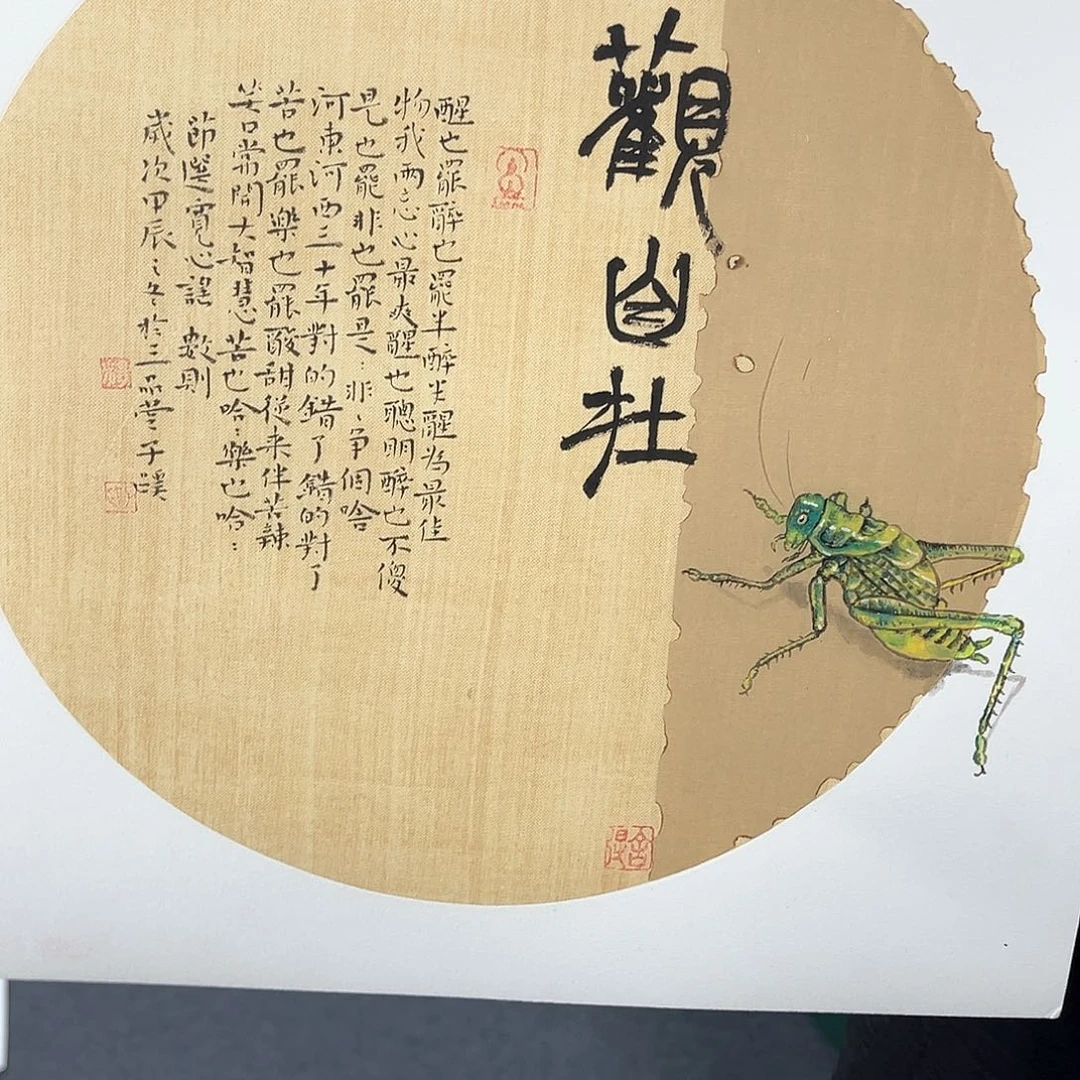 觀自在
醒也罷醉也罷半醉半醒為最佳
物我兩忘心最爽醒也聰明醉也不傻
是也罷非也罷是〻非〻爭個啥
河東河西三十年對的錯了錯的對了
苦也罷樂也罷酸甜從来伴苦辣
笑口常開大智慧苦也哈〻樂也哈〻
節選寬心謠 數則
歲次甲辰之冬於三品堂子蹊